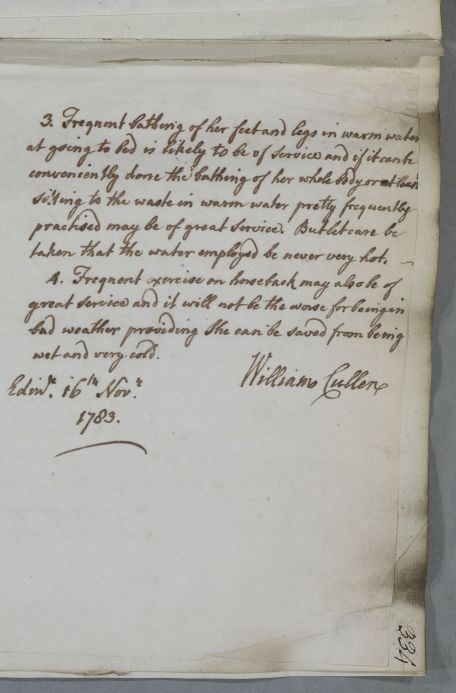 3. Frequent bathing of her feet and legs in warm water
at going to bed is likely to be of service and if it can be
conveniently done the bathing of her whole body or at least
sitting to the waste in warm water pretty frequently
practised may be of great service. But let care be
taken that the water employed be never very hot.
4. Frequent exercise on horseback may also be of
great service and it will not be the worse for being in
bad weather providing she can be saved from being
wet and very cold.
William Cullen
Edinr. 16th Novr.
1783.
334